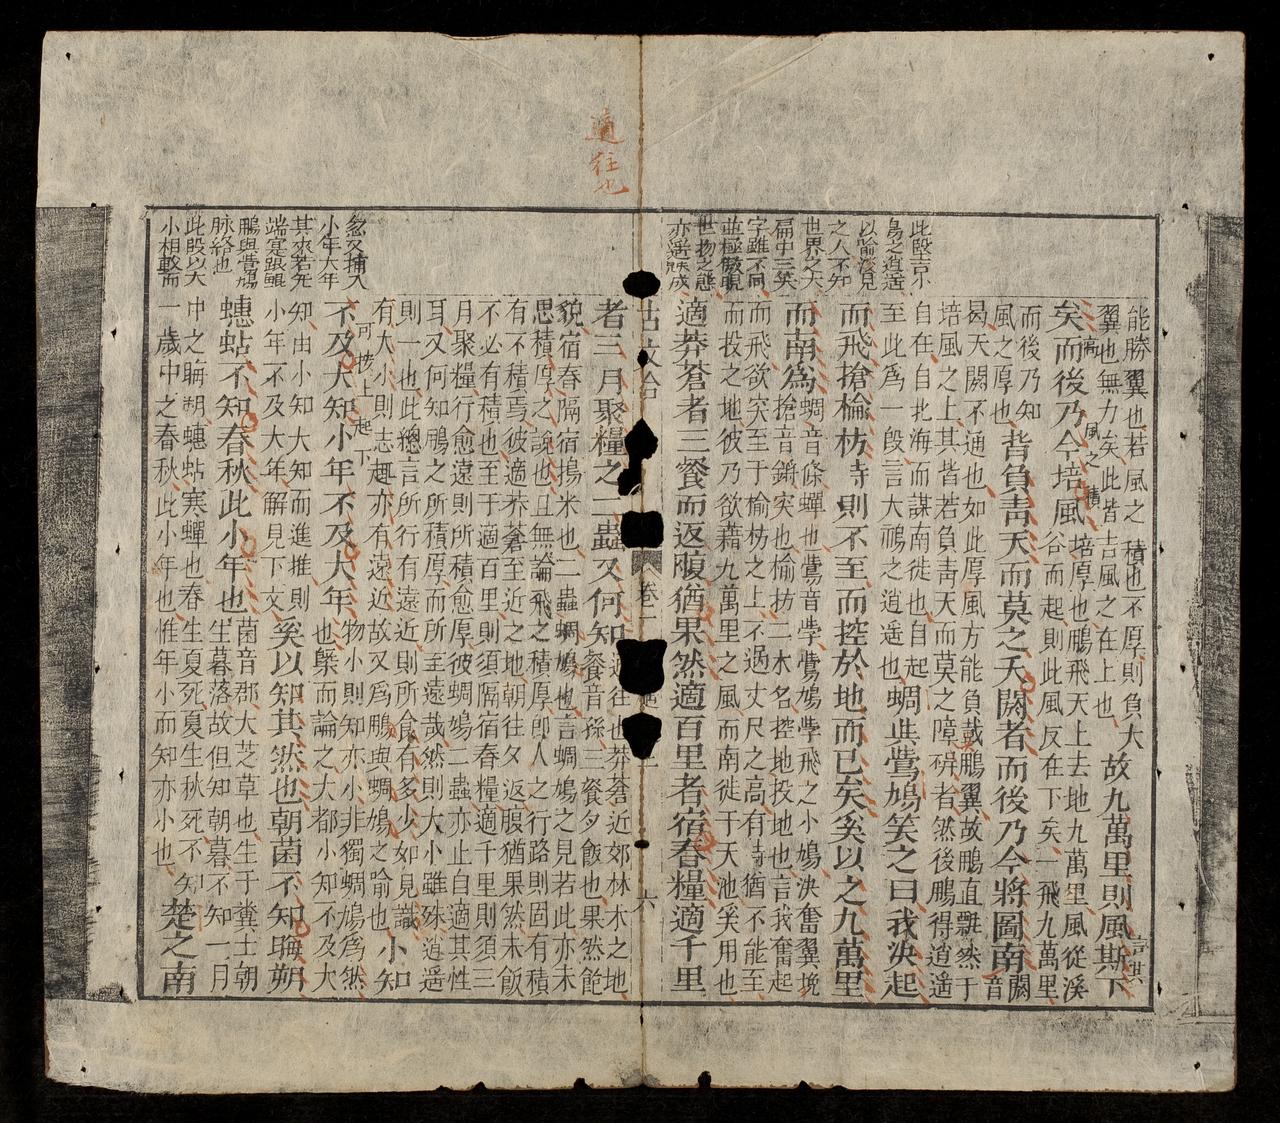 適
往也
此段言小
鳥之逍遙
以喻淺見
之人不知
世界之大
篇中三笑
字雖不同
世物之態
能勝翼也若風之積也不厚則負大
翼也無力矣此皆言風之在上也
故九萬里則風斯下
矣而後乃今培風
培厚也鵬飛天上去地九萬里風從溪
谷而起則此風反在下矣一飛九萬里
而後乃知
風之厚也
背負靑天而莫之夭閼者而後乃今將圖南
閼音
曷夭閼不通也如此厚風方能負戴鵬翼故鵬直飄然于
培風之上其背若負靑天而莫之障碍者然後鵬得逍遙
自在自北海而謀南徙也自起
至此爲一段言大鵬之逍遥也
蜩與鷽鳩笑之曰我決起
而飛搶楡枋時則不至而控於地而已矣奚以之九萬里
而南爲
蜩音條蟬也鷽音學鷽鳩學飛之小鳩決奮翼
搶音鏘突也楡枋二木名控地投地也言我奮起
而飛欲突至于楡枋之上不過丈尺之高有時猶不能至
而投之地彼乃欲藉九萬里之風而南徙于天池奚用也
適莽蒼者三餐而返腹猶果然適百里者宿舂糧適千里
者三月聚糧之二蟲又何知
適往也莽蒼近郊林木之地
餐音孫三餐夕飯也果然飽
貌宿舂隔宿搗米也二蟲蜩鳩也言蜩鳩之見若此亦未
思積厚之說也且無論飛之積厚卽人之行路則固有積
有不積焉彼適莽蒼至近之地朝往夕返腹猶果然未飯
不必有積也至于適百里則須隔宿舂糧適千里則須三
月聚糧行愈遠則所積愈厚彼蜩鳩二蟲亦止自適其性
耳又何知鵬之所積厚而所至遠哉然則大小雖殊逍遥
則一也此總言所行有遠近則所食有多少如見識
有大小則志趣亦有遠近故又爲鵬與蜩鳩之喻也
小知
可接上起下
不及大知小年不及大年
也槩而論之大都小知不及大
知由小知大知而進推則
小年不及大年解見下文
奚以知其然也朝菌不知晦朔
蟪蛄不知春秋此小年也
菌音郡大芝草也生于糞土朝
生暮落故但知朝暮不知一月
中之晦朔蟪蛄寒蟬也春生夏死夏生秋死不知
一歲中之春秋此小年也惟年小而知亦小也
楚之南
忽又插入
小年大年
其來若先
鵬與鷽鳩
脉絡也
此段以大
小相較而
卷一
六